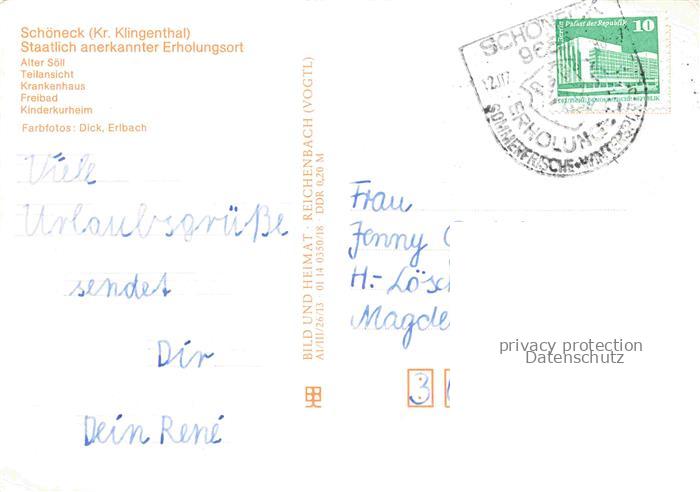 Schöneck (Kr. Klingenthal)
Staatlich anerkannter Erholungsort
Alter Söll
Teilansicht
Krankenhaus
Freibad
Kinderkurheim
Farbfotos: Dick, Erlbach
Viele
Urlaubsgrüße
sendet
Dir
Dein René
BILD UND HEIMAT · REICHENBACH (VOGTL)
A1/III/26/13 01 14 0350/18 DDR 0,20 M
SCHÖNECK
ERHOLUNGS
SOMMERFRISCHE
Palast der Republik
10
DEUTSCHE DEMOKRATISCHE REPUBLIK
Frau
Jenny
H.-Lösc
Magde
3
privacy protection
Datenschutz